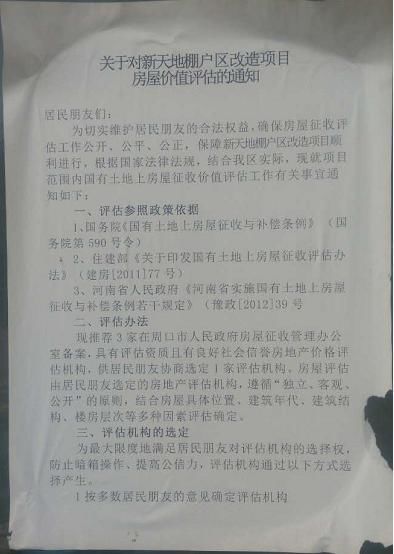 关于对新天地棚户区改造项目
房屋价值评估的通知
居民朋友们:
为切实维护居民朋友的合法权益,确保房屋征收评
估工作公开、公平、公正,保障新天地棚户区改造项目顺
利进行,根据国家法律法规,结合我区实际,现就项目
范围内国有土地上房屋征收价值评估工作有关事宜通
知如下:
一、评估参照政策依据
1、国务院《国有土地上房屋征收与补偿条例》(国
务院第 590 号令)
2、住建部《关于印发国有土地上房屋征收评估办
法》(建房[2011]77 号)
3、河南省人民政府《河南省实施国有土地上房屋
征收与补偿条例若干规定》(豫政[2012]39 号
二、评估办法
现推荐 3 家在周口市人民政府房屋征收管理办公
室备案,具有评估资质且有良好社会信誉房地产价格评
估机构,供居民朋友协商选定 1 家评估机构。房屋评估
由居民朋友选定的房地产评估机构,遵循“独立、客观、
公开”的原则,结合房屋具体位置、建筑年代、建筑结
构、楼房层次等多种因素评估确定。
三、评估机构的选定
为最大限度地满足居民朋友对评估机构的选择权,
防止暗箱操作、提高公信力,评估机构通过以下方式选
择产生。
1 按多数居民朋友的意见确定评估机构